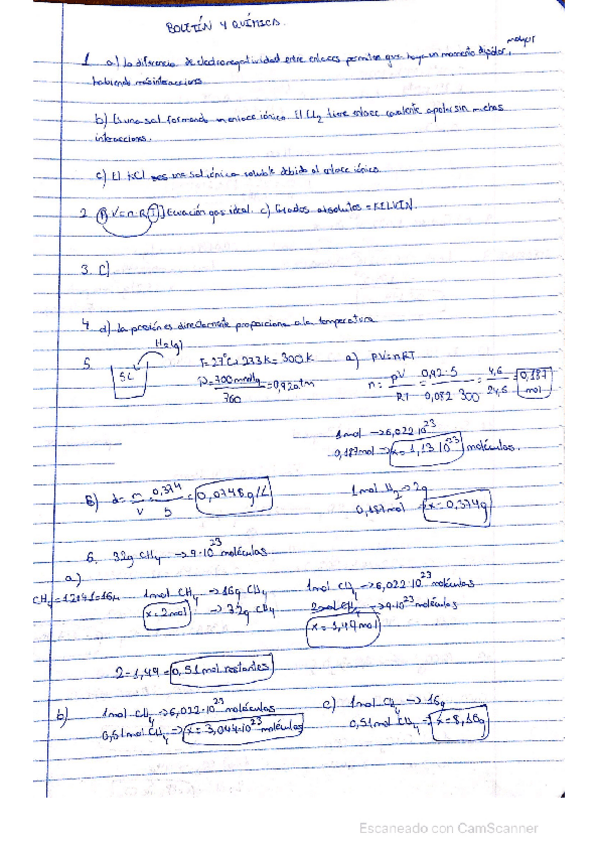 BOLETÍN 4 QUÍMICA.
1 a) La diferencia de electronegatividad entre enlaces permite que haya un momento dipolar, mayor
habiendo más interacciones
b) Es una sal formando un enlace iónico. El Cl2 tiene enlace covalente apolar sin muchas
interacciones.
c) El KCl es una sal iónica soluble debido al enlace iónico
2. P.V=n.R.T] Ecuación gas ideal. c) Grados absolutos = KELVIN.
3. C)
4 d) La presión es directamente proporcional a la temperatura
H2(g)
5. 5L T=27ºC+273K=300K a) PV=nRT
P=700mmHg/760=0,92atm n=PV/RT=0,92·5/0,082·300=4,6/24,6=0,187 mol
1mol →6,022·10^23
0,187mol →x=1,13·10^23 moléculas.
B) d=m/V=0,374/5=0,0748g/L 1mol H2→2g
0,187mol x=0,374g
6. 32g CH4 →9·10^23 moléculas
a)
CH4=12+4·1=16u 1mol CH4→16g CH4 1mol CH4→6,022·10^23 moléculas
x=2mol →32g CH4 →9·10^23 moléculas
x=1,49mol
2-1,49=0,51mol restantes
b) 1mol CH4→6,022·10^23 moléculas c) 1mol CH4→16g
0,51mol CH4→x=3,044·10^23 moléculas 0,51mol CH4→x=8,16g
Escaneado con CamScanner